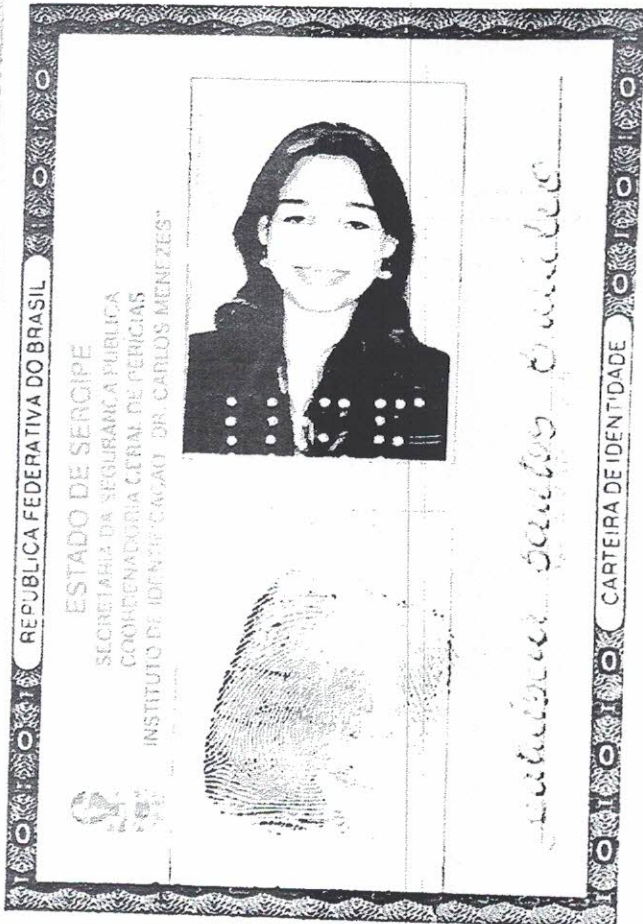 REPÚBLICA FEDERATIVA DO BRASIL
ESTADO DE SERGIPE
SECRETARIA DA SEGURANÇA PÚBLICA
COORDENADORIA GERAL DE PERÍCIAS
INSTITUTO DE IDENTIFICAÇÃO "DR. CARLOS MENEZES"
Santos
CARTEIRA DE IDENTIDADE